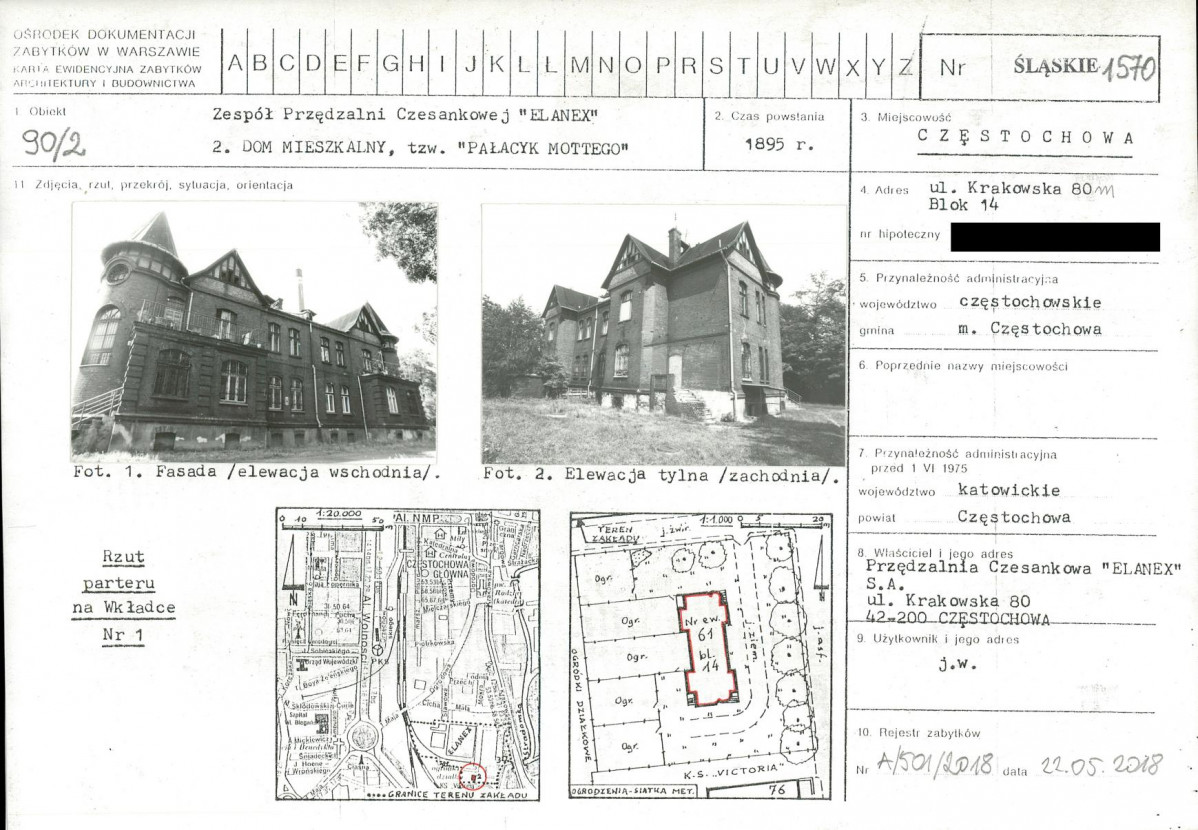 OŚRODEK DOKUMENTACJI
ZABYTKÓW W WARSZAWIE
KARTA EWIDENCYJNA ZABYTKÓW
ARCHITEKTURY I BUDOWNICTWA
A B C D E F G H I J K L Ł M N O P R S T U V W X Y Z
Nr ŚLĄSKIE 1570
1. Obiekt
90/2
Zespół Przędzalni Czesankowej "ELANEX"
2. DOM MIESZKALNY, tzw. "PAŁACYK MOTTEGO"
2. Czas powstania
1895 r.
3. Miejscowość
CZĘSTOCHOWA
11 Zdjęcia, rzut, przekrój, sytuacja, orientacja
Fot. 1. Fasada /elewacja wschodnia/.
Fot. 2. Elewacja tylna /zachodnia/.
Rzut
parteru
na Wkładce
Nr 1
1:20.000
0 10 50 m
Al. NMP
Katedralna
CZĘSTOCHOWA
GŁÓWNA
Al. Wolności
Kopernika
Sobieskiego
Urząd Wojewódzki
PKS
Piotrkowska
Skłodowskiej-Curie
Szpital
Cicha
Mała
ELANEX
GRANICE TERENU ZAKŁADU
1:1.000
0 5 20 m
TEREN
ZAKŁADU
j. żwir.
N
Ogr.
Ogr.
Ogr.
Ogr.
Ogr.
Nr ew.
61
bl.
14
j. ziem.
j. asf.
OGRÓDKI DZIAŁKOWE
K.S. "VICTORIA"
OGRODZENIA-SIATKA MET.
76
4. Adres
ul. Krakowska 80
Blok 14
nr hipoteczny
5. Przynależność administracyjna
województwo częstochowskie
gmina m. Częstochowa
6. Poprzednie nazwy miejscowości
7. Przynależność administracyjna
przed 1 VI 1975
województwo katowickie
powiat Częstochowa
8. Właściciel i jego adres
Przędzalnia Czesankowa "ELANEX"
S.A.
ul. Krakowska 80
42-200 CZĘSTOCHOWA
9. Użytkownik i jego adres
j.w.
10. Rejestr zabytków
Nr A/501/2018 data 22.05.2018